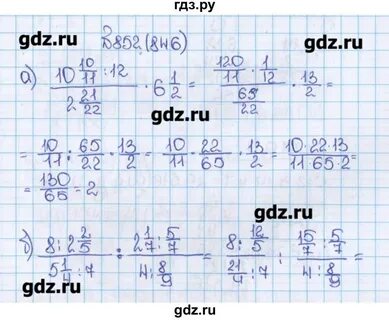 гдз.ру
gdz.ru gdz.ru
№852.(846)
а) (10 10/11 : 12)/(2 21/22) · 6 1/2 = (120/11 · 1/12)/(65/22) · 13/2 =
gdz.ru gdz.ru
= 10/11 : 65/22 · 13/2 = 10/11 · 22/65 · 13/2 = (10·22·13)/(11·65·2) =
= 130/65 = 2
gdz.ru gdz.ru
б) (8 : 2 2/5)/(5 1/4 : 7) : (2 1/7 : 5/7)/(4 : 8/9) = (8 : 12/5)/(21/4 : 7) : (15/7 : 5/7)/(4 : 8/9) =
gdz.ru gdz.ru